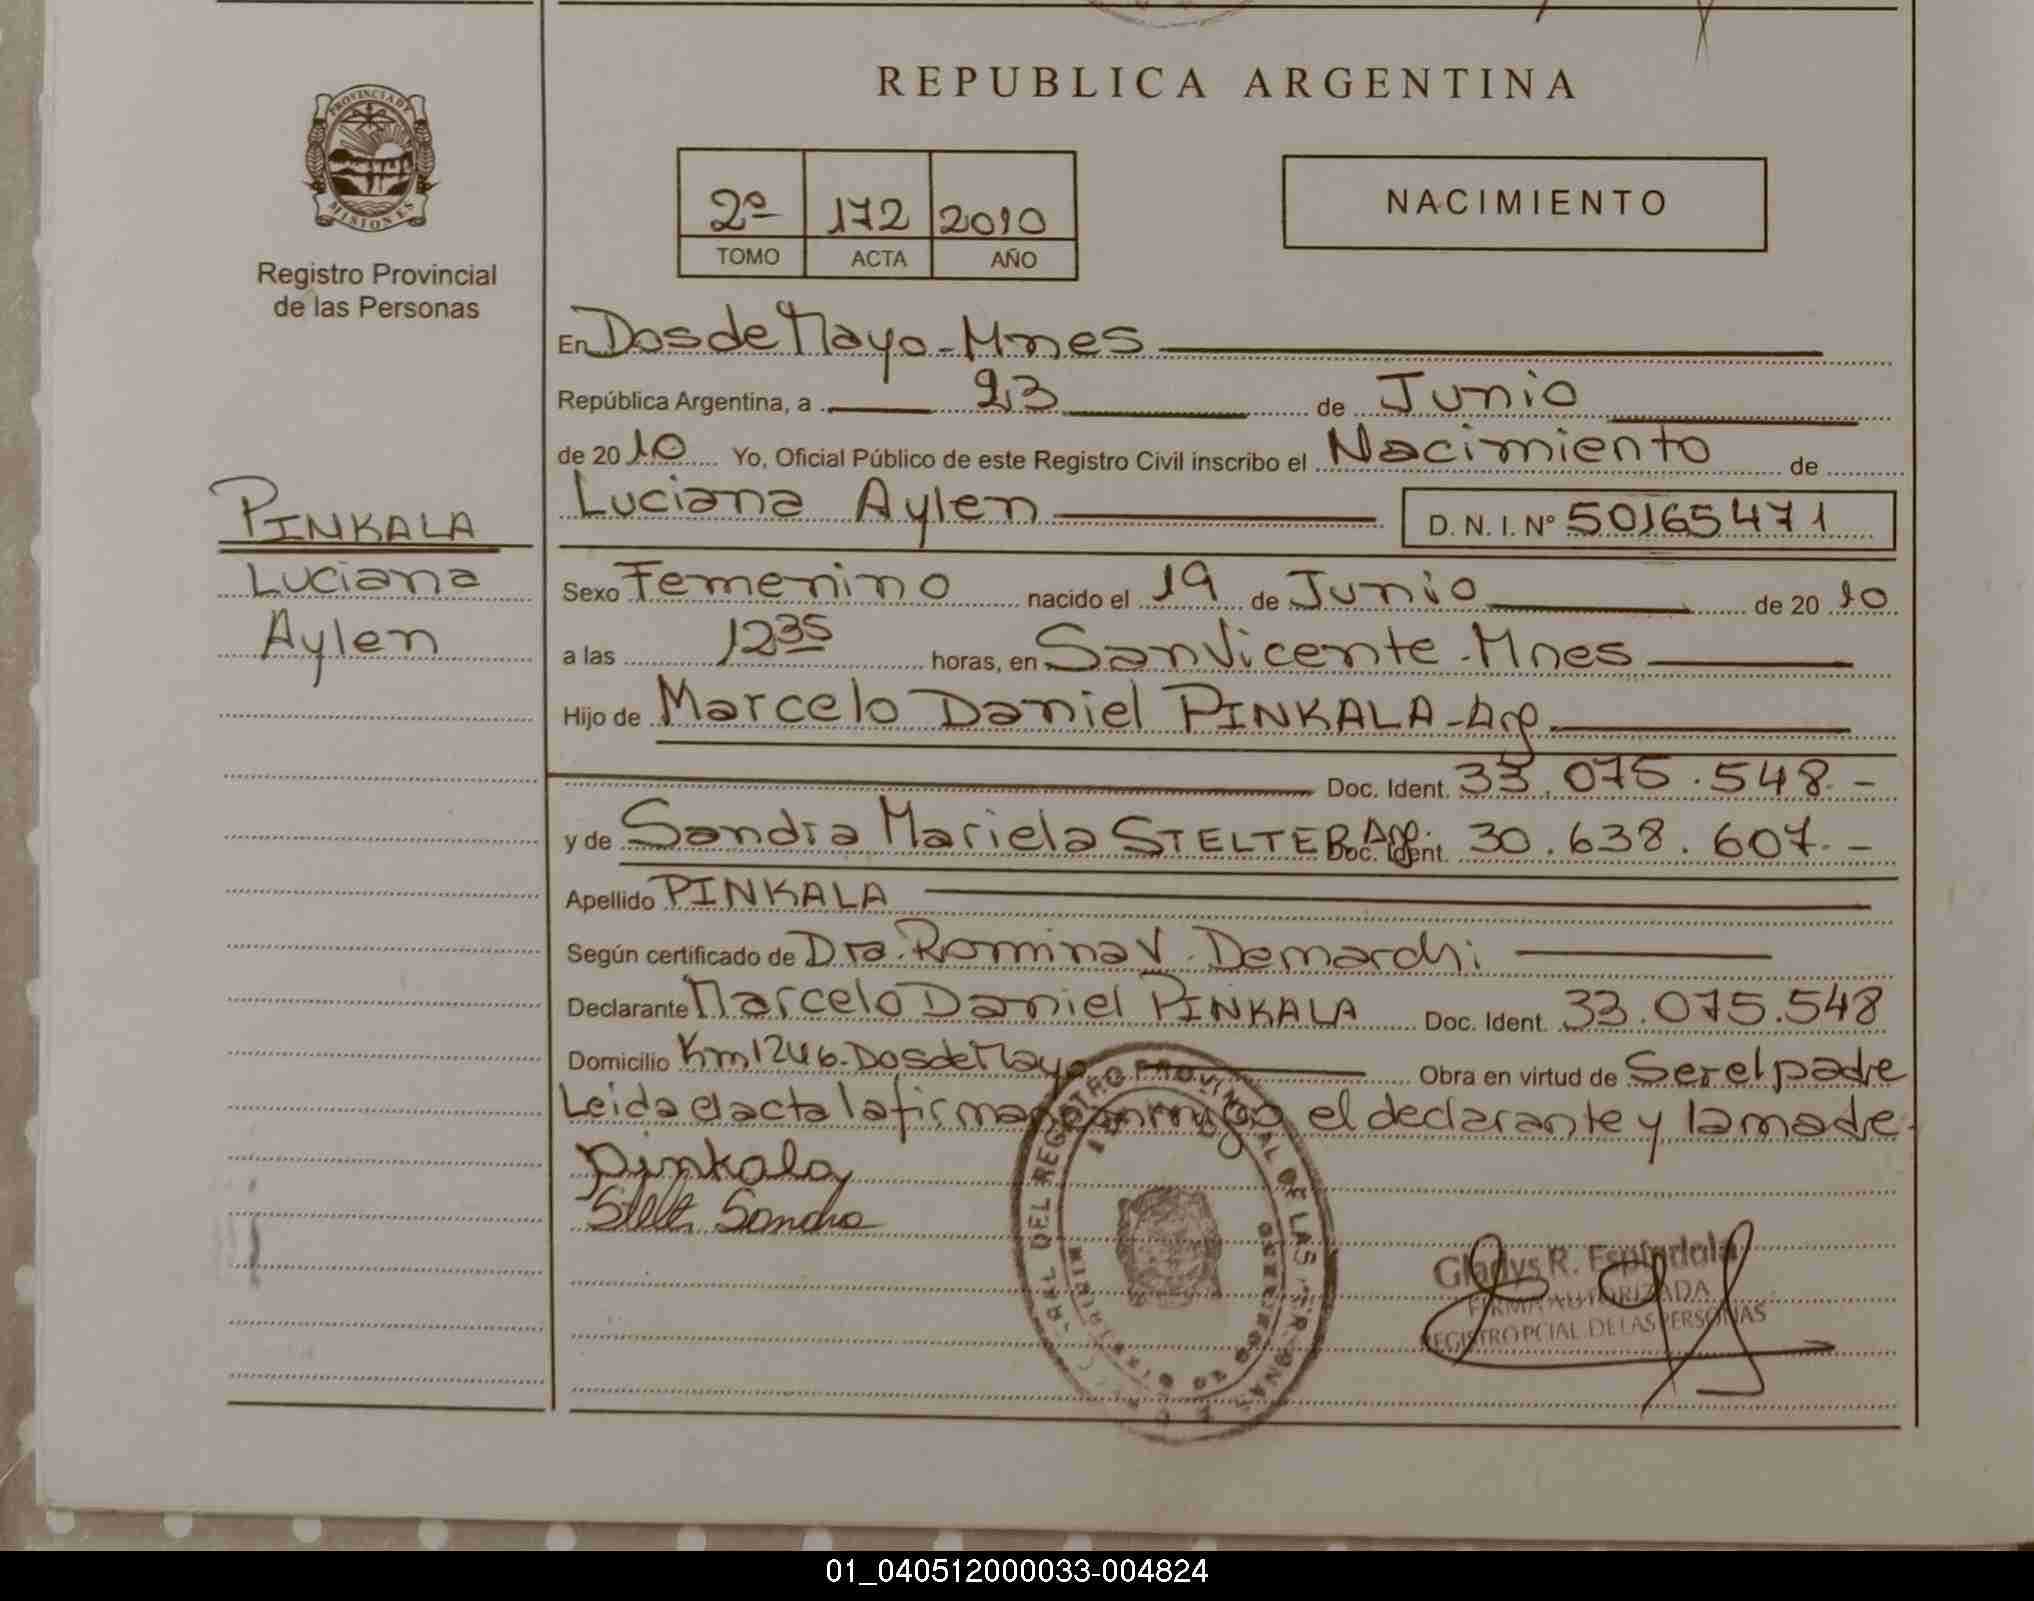 REPUBLICA ARGENTINA
PROVINCIA DE
MISIONES
Registro Provincial
de las Personas
2º 172 2010
TOMO ACTA AÑO
NACIMIENTO
En Dos de Mayo - Mnes
República Argentina, a 23 de Junio
de 2010 Yo, Oficial Público de este Registro Civil inscribo el Nacimiento de
Luciana Aylen D. N. I. Nº 50165471
PINKALA
Luciana
Aylen
Sexo Femenino nacido el 19 de Junio de 2010
a las 12 35 horas, en San Vicente - Mnes
Hijo de Marcelo Daniel PINKALA - Arg
Doc. Ident. 33.075.548.-
y de Sandra Mariela STELTER Arg. Doc. Ident. 30.638.607.-
Apellido PINKALA
Según certificado de Dra. Romina V. Demarchi
Declarante Marcelo Daniel PINKALA Doc. Ident. 33.075.548
Domicilio Km 1246 - Dos de Mayo Obra en virtud de Ser el padre
Leida el acta la firman conmigo el declarante y la madre.
Pinkala
Sandra
DEL REGISTRO PROVINCIAL DE LAS PERSONAS
Gladys R. Espindola
FIRMA AUTORIZADA
REGISTRO PCIAL. DE LAS PERSONAS
01_040512000033-004824